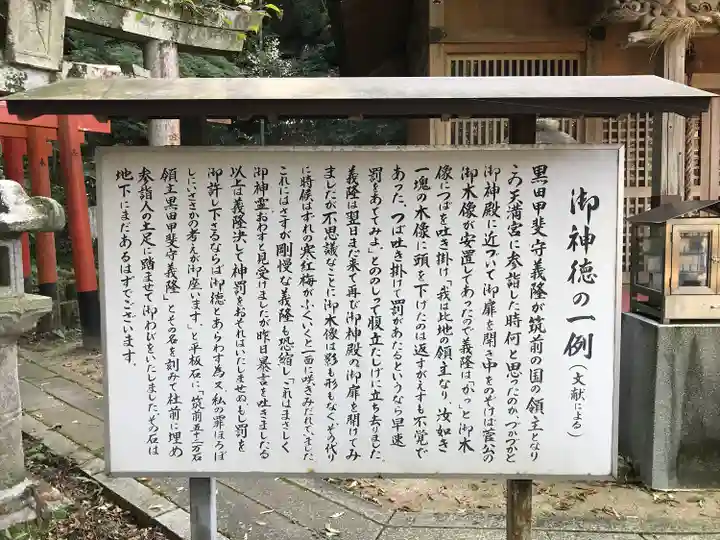 御神徳の一例（文献による）
黒田甲斐守義隆が筑前の国の領主となり
ころ天満宮に参詣した時何と思ったのか、づかづかと
御神殿に近づいて御扉を開き中をのぞけば菅公の
御木像が安置してあったので義隆は「かっ」と御木
像につばを吐き掛け「我は此地の領主なり、汝如き
一塊の木像に頭を下けたのは返すがえすも不覚で
あった、つば吐き掛けて罰があたるというなら早速
罰をあててみよ」とののしって腹立たしげに立ち去りました。
義隆は翌日また来て再び御神殿の御扉を開けてみ
ましたが不思議なことに御木像は影も形もなくその代り
に時候はずれの寒紅梅がふくいくと一面に咲きみだれていました
これにはさすが剛慢な義隆も恐縮し「これはまさしく
御神霊おわすと見受けましたが昨日暴言を吐きましたる
以上は義隆決して神罰をおそれはいたしませぬ、もし罰を
御許し下さるならば御徳とあらわす為又私の罪ほろぼ
しにいささかの考えが御座います」と平板石に、「筑前五十二万石
領主黒田甲斐守義隆」とその名を刻みて社前に埋め
参詣人の土足に踏ませて御わびをいたしました、その石は
地下にまだあるはずでございます。